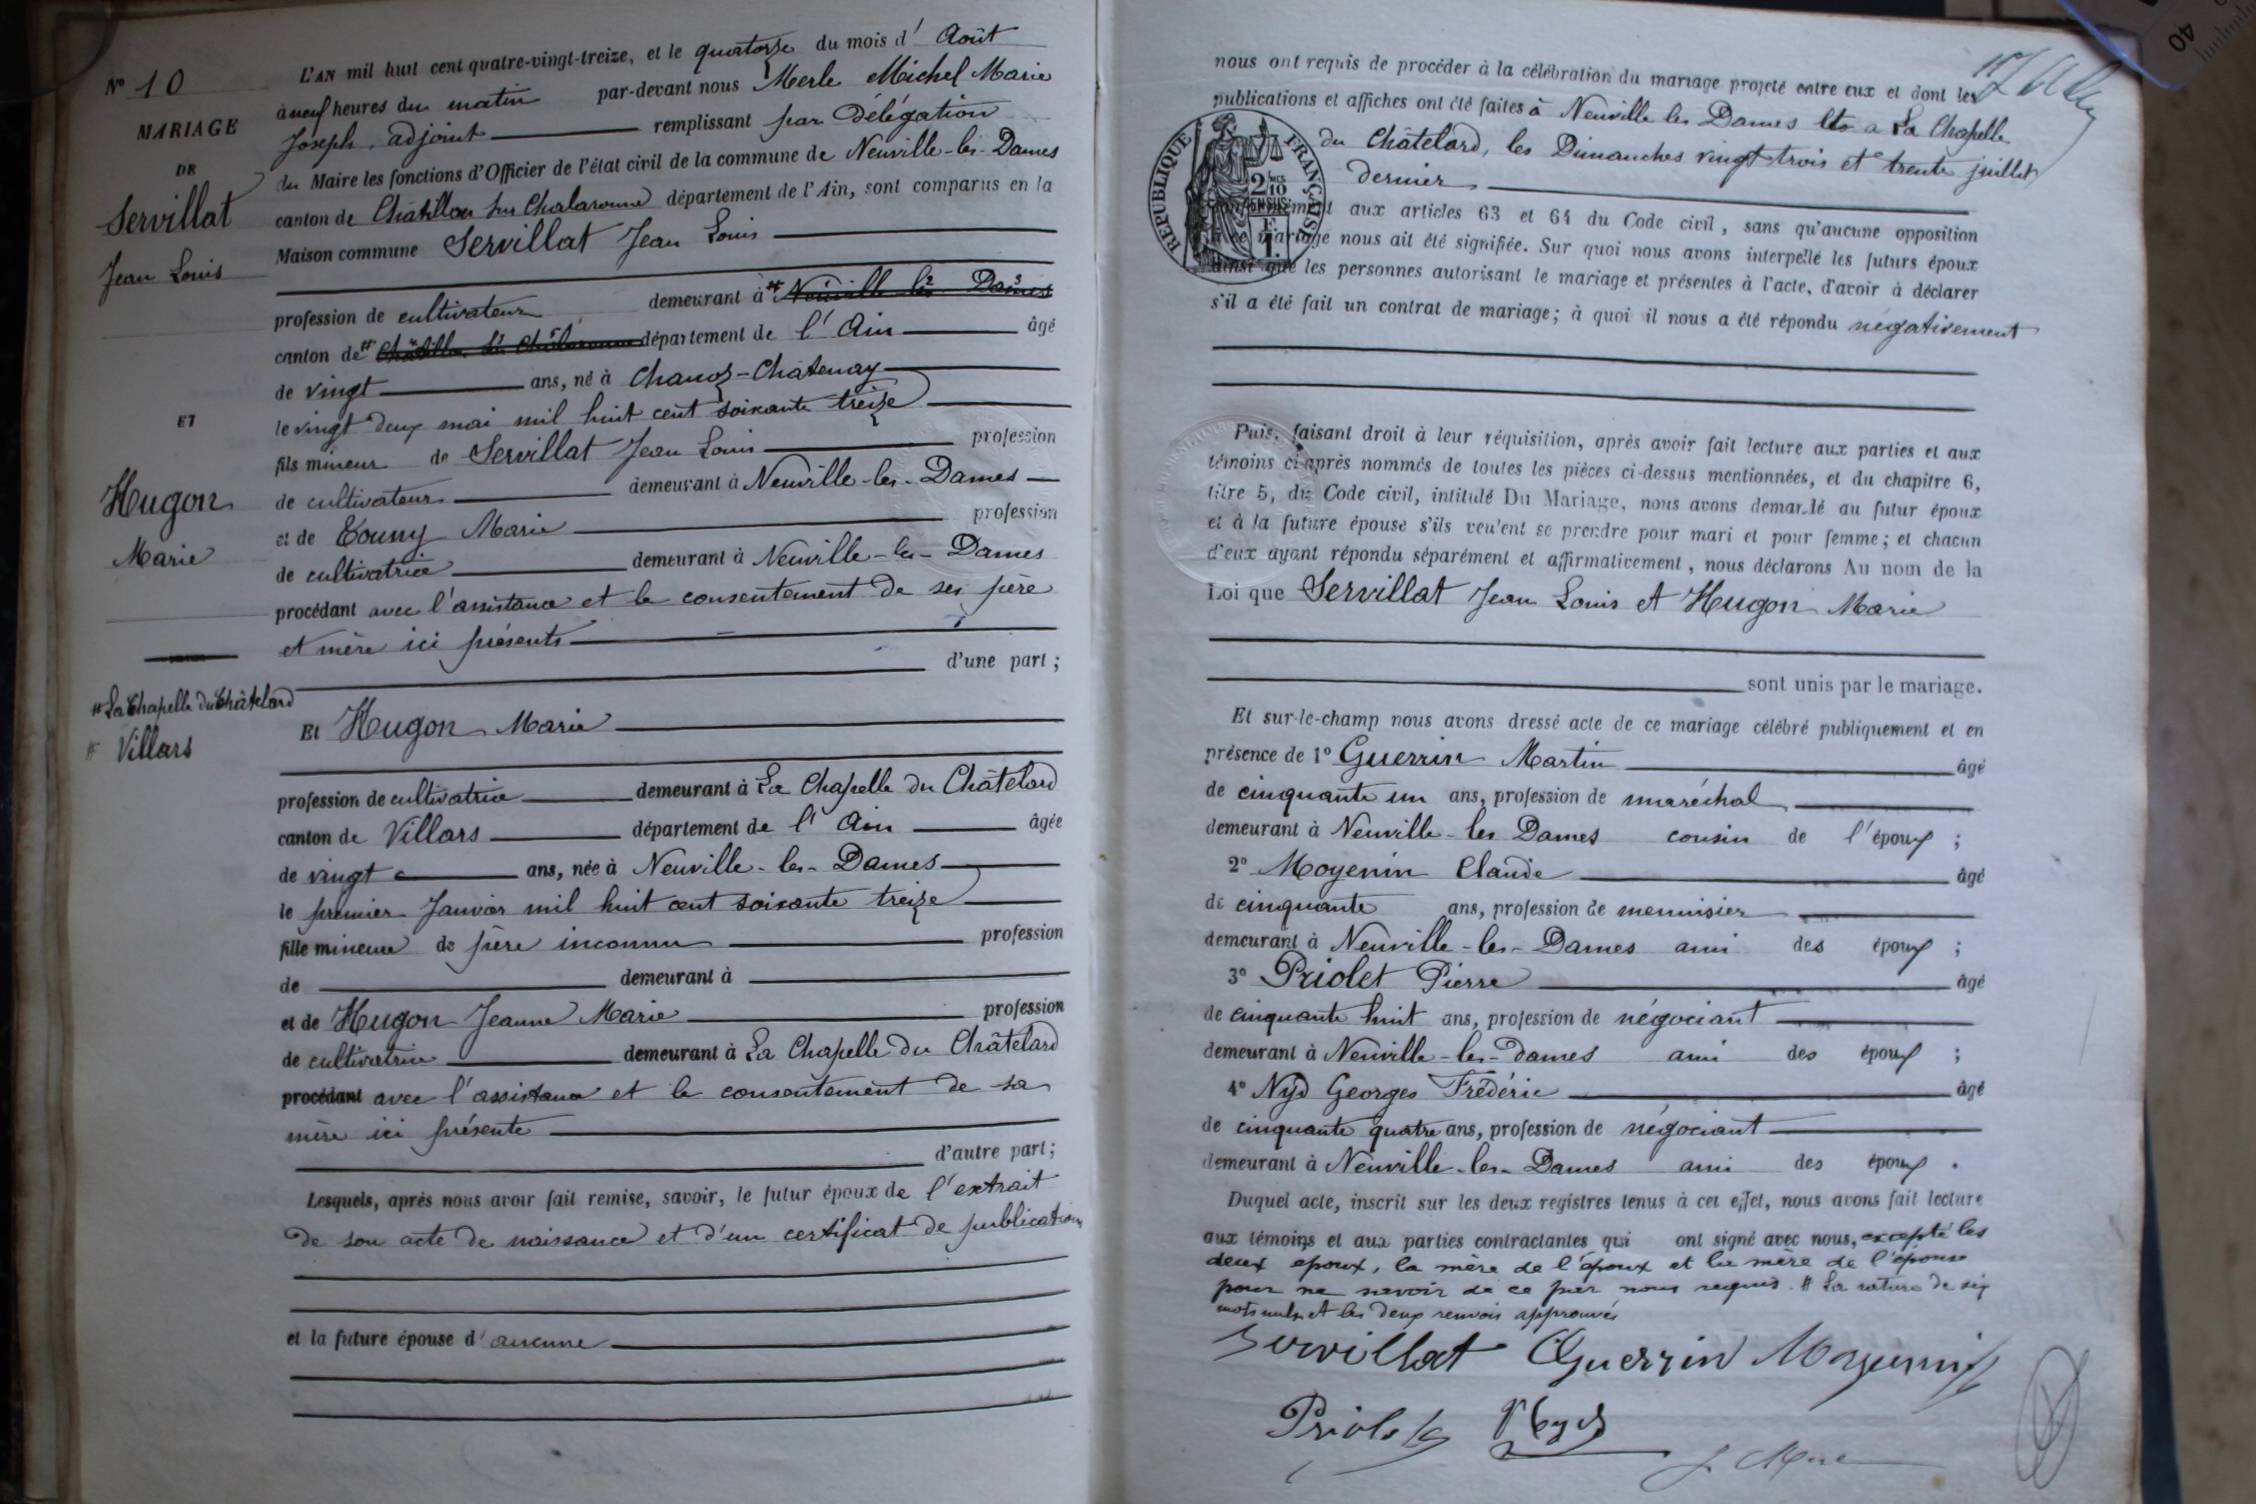 N° 10
MARIAGE
DE
Servillat
Jean Louis
ET
Hugon
Marie
# La Chapelle du Châtelard
# Villars
L'AN mil huit cent quatre-vingt-treize, et le quatorze du mois d' Août
à neuf heures du matin par-devant nous Merle Michel Marie
Joseph, adjoint remplissant par délégation
du Maire les fonctions d'Officier de l'état civil de la commune de Neuville-les-Dames
canton de Châtillon sur Chalaronne département de l'Ain, sont comparus en la
Maison commune Servillat Jean Louis
profession de cultivateur demeurant à # Neuville les Dames
canton de # Châtillon sur Chalaronne département de l'Ain âgé
de vingt ans, né à Chanoz-Chatenay
le vingt deux mai mil huit cent soixante treize
fils mineur de Servillat Jean Louis profession
de cultivateur demeurant à Neuville-les-Dames
et de Touny Marie profession
de cultivatrice demeurant à Neuville-les-Dames
procédant avec l'assistance et le consentement de ses père
et mère ici présents
d'une part ;
Et Hugon Marie
profession de cultivatrice demeurant à La Chapelle du Châtelard
canton de Villars département de l'Ain âgée
de vingt ans, née à Neuville-les-Dames
le premier Janvier mil huit cent soixante treize
fille mineure de père inconnu profession
de demeurant à
et de Hugon Jeanne Marie profession
de cultivatrice demeurant à La Chapelle du Châtelard
procédant avec l'assistance et le consentement de sa
mère ici présente
d'autre part ;
Lesquels, après nous avoir fait remise, savoir, le futur époux de l'extrait
de son acte de naissance et d'un certificat de publication
et la future épouse d'aucune
nous ont requis de procéder à la célébration du mariage projeté entre eux et dont les
publications et affiches ont été faites à Neuville les Dames et à La Chapelle
du Châtelard, les Dimanches vingt trois et trente juillet
dernier
RÉPUBLIQUE FRANÇAISE
2/10
EN SUS
1 F.
conformément aux articles 63 et 64 du Code civil, sans qu'aucune opposition
à ce mariage nous ait été signifiée. Sur quoi nous avons interpellé les futurs époux
ainsi que les personnes autorisant le mariage et présentes à l'acte, d'avoir à déclarer
s'il a été fait un contrat de mariage ; à quoi il nous a été répondu négativement
Puis, faisant droit à leur réquisition, après avoir fait lecture aux parties et aux
témoins ci-après nommés de toutes les pièces ci-dessus mentionnées, et du chapitre 6,
titre 5, du Code civil, intitulé Du Mariage, nous avons demandé au futur époux
et à la future épouse s'ils veulent se prendre pour mari et pour femme ; et chacun
d'eux ayant répondu séparément et affirmativement, nous déclarons Au nom de la
Loi que Servillat Jean Louis et Hugon Marie
sont unis par le mariage.
Et sur-le-champ nous avons dressé acte de ce mariage célébré publiquement et en
présence de 1° Guerrin Martin âgé
de cinquante un ans, profession de maréchal
demeurant à Neuville-les Dames cousin de l'époux ;
2° Moyenin Claude âgé
de cinquante ans, profession de menuisier
demeurant à Neuville-les-Dames ami des époux ;
3° Priolet Pierre âgé
de cinquante huit ans, profession de négociant
demeurant à Neuville-les-Dames ami des époux ;
4° Nyd Georges Frédéric âgé
de cinquante quatre ans, profession de négociant
demeurant à Neuville-les-Dames ami des époux .
Duquel acte, inscrit sur les deux registres tenus à cet effet, nous avons fait lecture
aux témoins et aux parties contractantes qui ont signé avec nous, excepté les
deux époux, la mère de l'époux et la mère de l'épouse
pour ne savoir de ce par nous requis. # La rature de six
mots nuls et les deux renvois approuvés
Servillat Guerrin Moyenin
Priolet Nyd
J. Merle